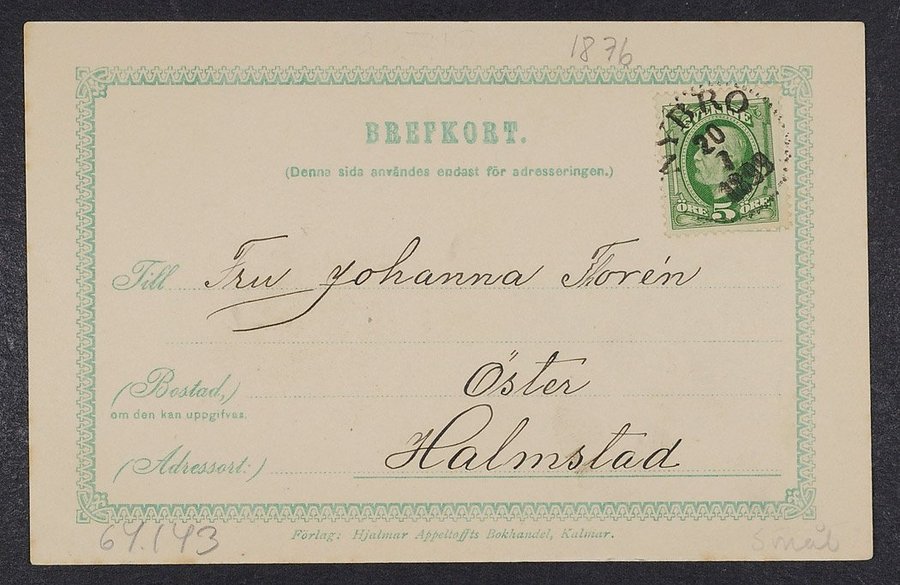 1876
BREFKORT.
(Denna sida användes endast för adresseringen.)
NYBRO
20
1
1899
SVERIGE
ÖRE 5 ÖRE
Till Fru Johanna Thorén
(Bostad,) Öster
om den kan uppgifvas.
(Adressort:) Halmstad
Förlag: Hjalmar Appeltoffts Bokhandel, Kalmar.
64.143
Smål